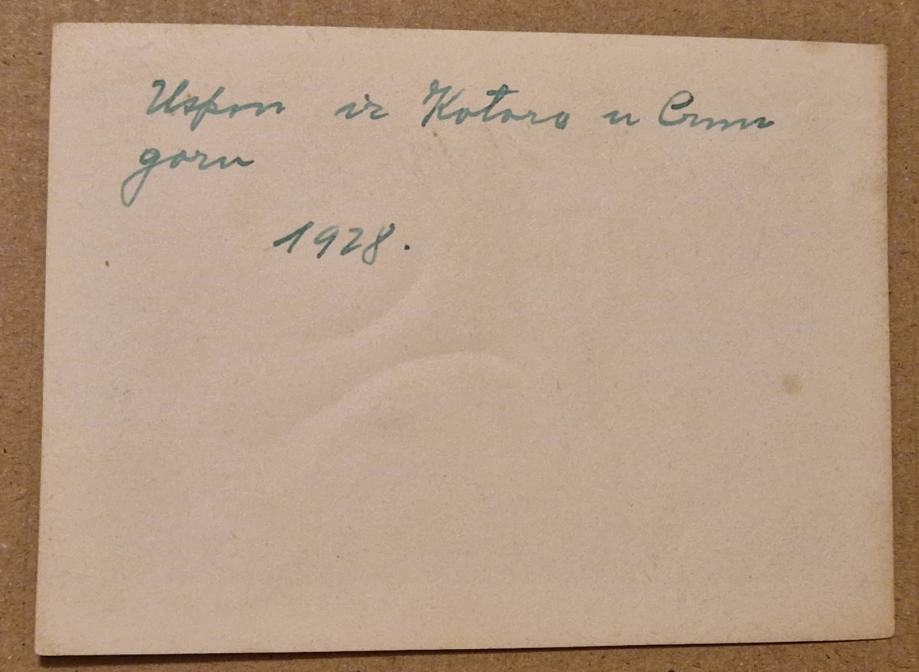 Uspon iz Kotora u Crnu
goru
1928.